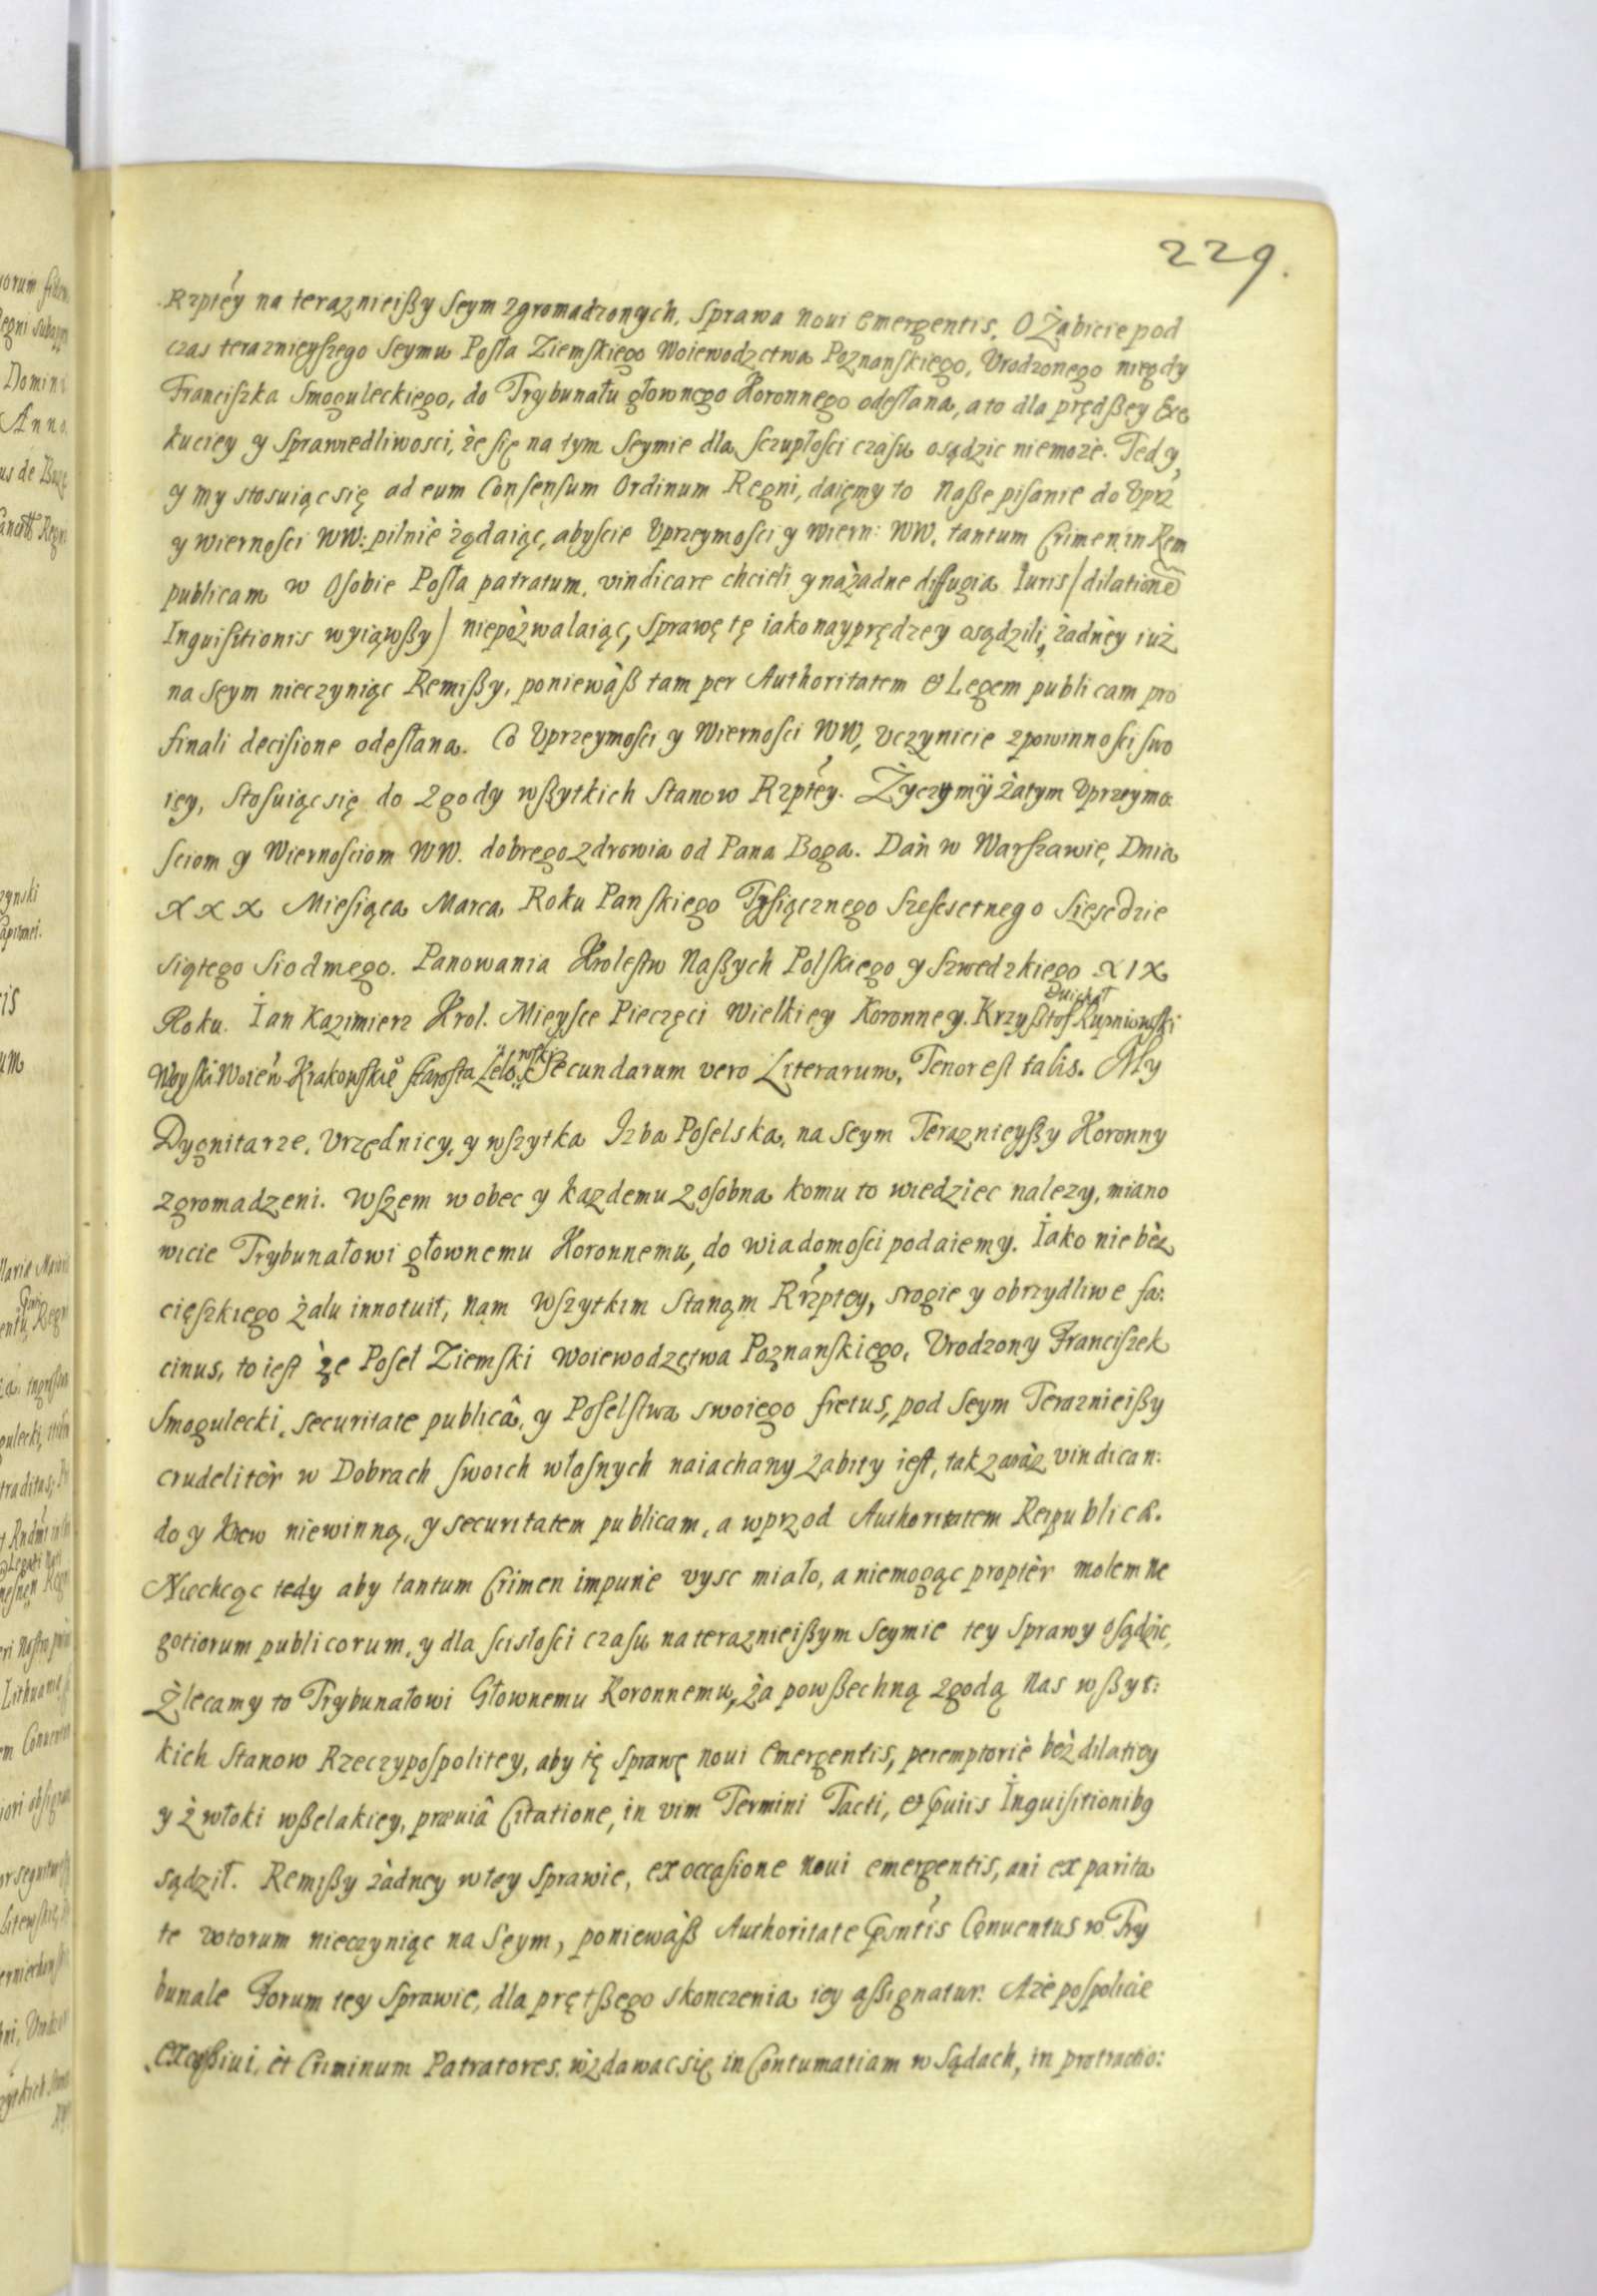 229.
Rzptéy na teraznieißy Seym zgromadzonych. Sprawa noui emergentis. O Żabicie pod
czas teraznieyszego Seymu Posła Ziemskiego Woiewodzctwa Poznanskiego, Vrodzonego niegdy
Franciszka Smoguleckiego, do Trybunału głownego Koronnego odesłana, a to dla prędßey Exe
kuciey y Sprawiedliwosci, że się na tym Seymie dla sczupłości czasu osądzic niemoże. Tedy
y my stosuiąc się ad eum Consensum Ordinum Regni, daięmy to naße pisanie do Vprz
y wiernosci WW: pilnie żądaiąc, abyscie Vprzeymosci y wiern: WW. tantum Crimen in Rem
publicam w Osobie Posła patratum, vindicare chcieli y na żadne diffugia Iuris / dilatione
Inquisitionis wyiąwßy / niepozwalaiąc, sprawę tę iako nayprędzey osądzili, żadney iuż
na Seym nieczyniąc Remißy, ponieważ tam per Authoritatem & Legem publicam pro
finali decisione odesłana. Co Vprzeymosci y Wiernosci WW, vczynicie z powinnosci swo
iey, stosuiąc się do Zgody wßytkich Stanow Rzptéy. Życzymÿ zatym Vprzeymo
sciom y Wiernosciom WW. dobrego zdrowia od Pana Boga. Dan w Warszawie, Dnia
XXX Miesiąca Marca Roku Panskiego Tysiącznego Szescsetnego Szescdzie
siątego Siodmego. Panowania Krolestw Naßych Polskiego y Szwedzkiego XIX
Roku. Ian Kazimierz Krol. Mieysce Pieczęci Wielkiey Koronney. Krzyßtof Rupniowski
Woyski Woiew Krakowskie starosta Secundarum vero Literarum, Tenor est talis. My
Dygnitarze, Vrzędnicy, y wszytka Izba Poselska, na Seym Teraznieyßy Koronny
zgromadzeni. Wszem wobec y kazdemu zosobna komu to wiedziec nalezy, miano
wicie Trybunałowi głownemu Koronnemu, do wiadomosci podaiemy. Iako nie bez
cięszkiego żalu innotuit, nam wszytkim Stanom Rzptey, srogie y obrzydliwe fa:
cinus, to iest że Poseł Ziemski Woiewodzctwa Poznanskiego, Vrodzony Franciszek
Smogulecki, securitate publicâ, y Poselstwa swoiego fretus, pod Seym Teraznieißy
crudeliter w Dobrach swoich własnych naiachany zabity iest, tak zaraz vindican:
do y krew niewinną, y securitatem publicam, a wprzod Authoritatem Reipublicæ.
Niechcąc tedy aby tantum Crimen impune vysc miało, a niemogąc propter molem ne
gotiorum publicorum, y dla scisłosci czasu na teraznieißym Seymie tey sprawy osądzic,
Żlecamy to Trybunałowi Głownemu Koronnemu, za powßechną zgodą nas wßyt:
kich Stanow Rzeczypospolitey, aby tę sprawę noui emergentis, peremptorie bez dilatiey
y zwłoki wßelakiey, præuiâ Citatione, in vim Termini Tacti, & Inquisitionibg
sądził. Remißy żadney w tey sprawie, ex occasione noui emergentis, ani ex parita
te votorum nieczyniąc na Seym, ponieważ Authoritate Conuentus w Try
bunale Forum tey Sprawie, dla prętßego skonczenia iey aßignatur. A że pospolicie
exceßiui, et Criminum Patratores, wzdawac się in Contumatiam w Sądach, in protractio: